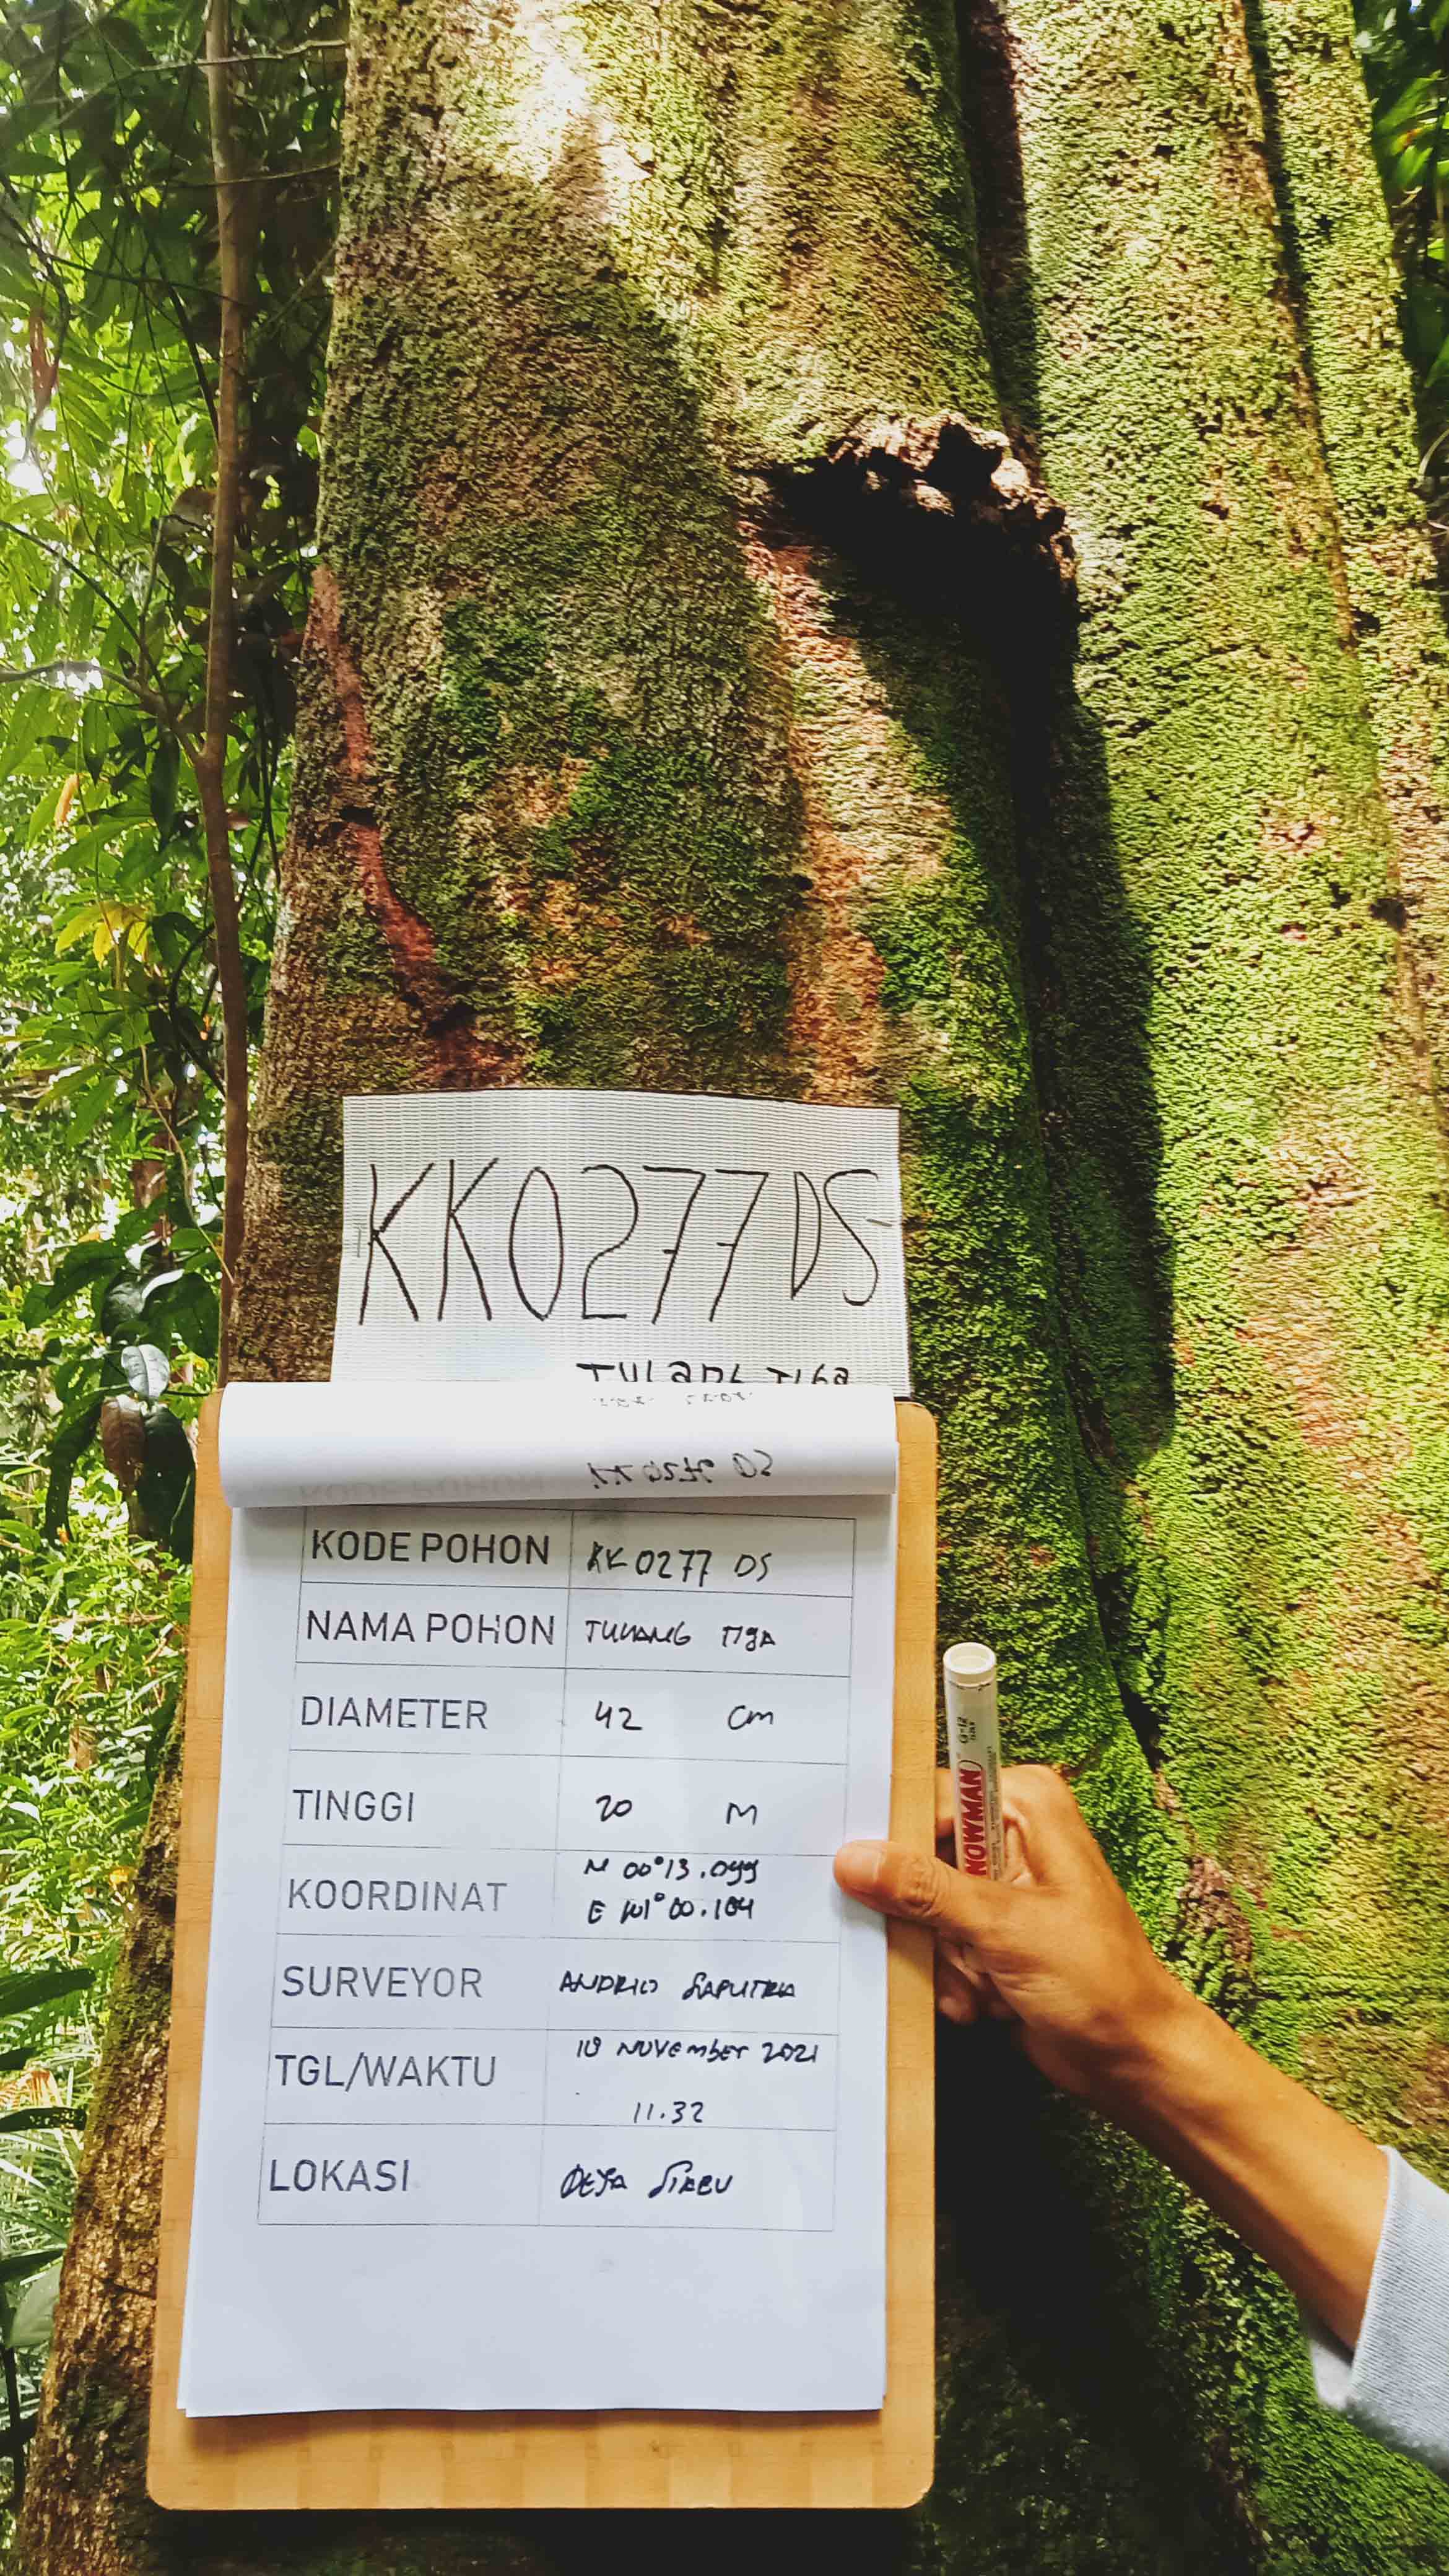 KK0277 DS
TULANG TIGA
KODE POHON KK 0277 DS
NAMA POHON TULANG TIGA
DIAMETER 42 cm
TINGGI 20 M
KOORDINAT N 00°13.099
E 101°00.104
SURVEYOR ANDRIO SAPUTRA
TGL/WAKTU 18 November 2021
11.32
LOKASI DESA SIABU
SNOWMAN G-12